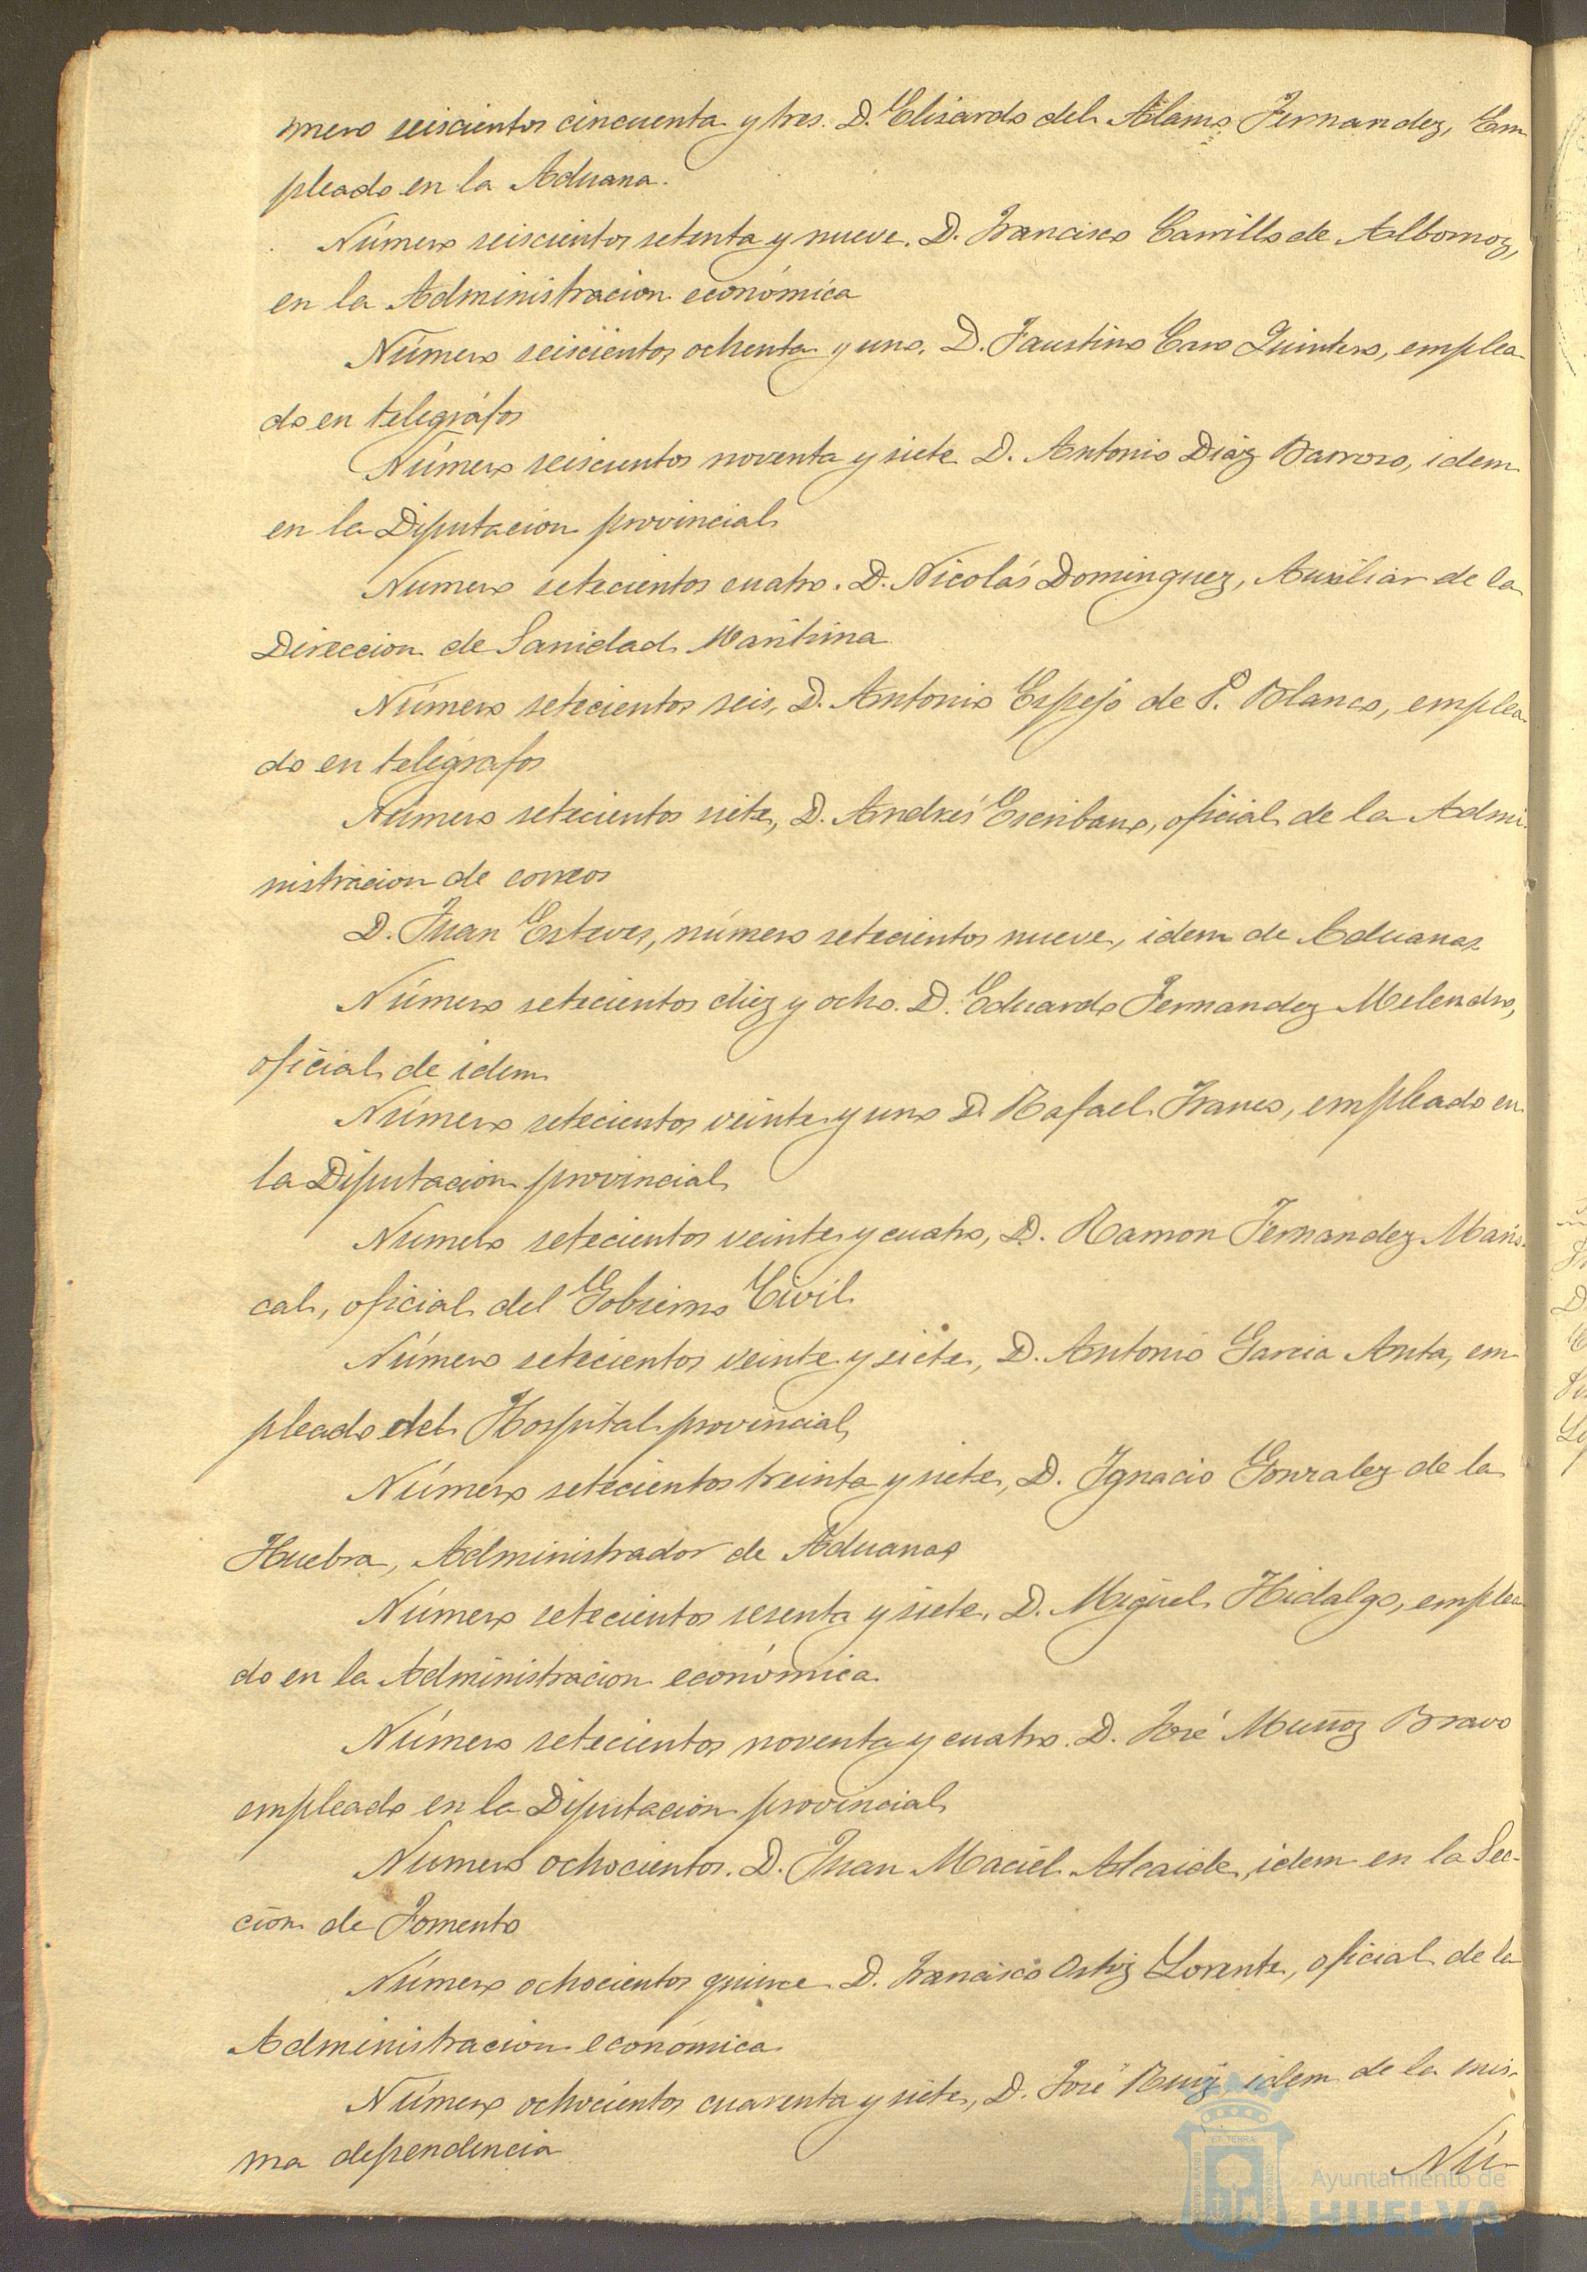 mero seiscientos cincuenta y tres. D. Elisardo del Alamo Fernandez, Em
pleado en la Aduana.
Número seiscientos setenta y nueve. D. Francisco Carrillo de Albornoz,
en la Administracion económica
Número seiscientos ochenta y uno. D. Faustino Caro Quintero, emplea
do en telegráfos
Número seiscientos noventa y siete D. Antonio Diaz Barroso, idem
en la Diputacion provincial
Numero setecientos cuatro. D. Nicolás Dominguez, Auxiliar de la
Direccion de Sanidad Maritima
Número setecientos seis, D. Antonio Espejo de P. Blanco, emplea
do en telégrafos
Número setecientos siete, D. Andrés Escribano, oficial de la Admi
nistracion de correos
D. Juan Esteves, número setecientos nueve, idem de Aduanas
Número setecientos diez y ocho. D. Eduardo Fernandez Melendro,
oficial de idem
Número setecientos veinte y uno D. Rafael Franco, empleado en
la Diputacion provincial
Numero setecientos veinte y cuatro, D. Ramon Fernandez Maris
cal, oficial del Gobierno Civil
Número setecientos veinte y siete, D. Antonio Garcia Anta, em
pleado del Hospital provincial
Número setecientos treinta y siete, D. Ignacio Gonzalez de la
Huebra, Administrador de Aduanas
Número setecientos sesenta y siete, D. Miguel Hidalgo, emplea
do en la Administracion económica
Número setecientos noventa y cuatro. D. José Muñoz Bravo
empleado en la Diputacion provincial
Numero ochocientos. D. Juan Maciel Alcaide, idem en la Sec-
cion de Fomento
Número ochocientos quince D. Francisco Ortiz Lorente, oficial de la
Administracion económica
Número ochocientos cuarenta y siete, D. José Ruiz idem de la mis-
ma dependencia
Nú-
Ayuntamiento de
HUELVA